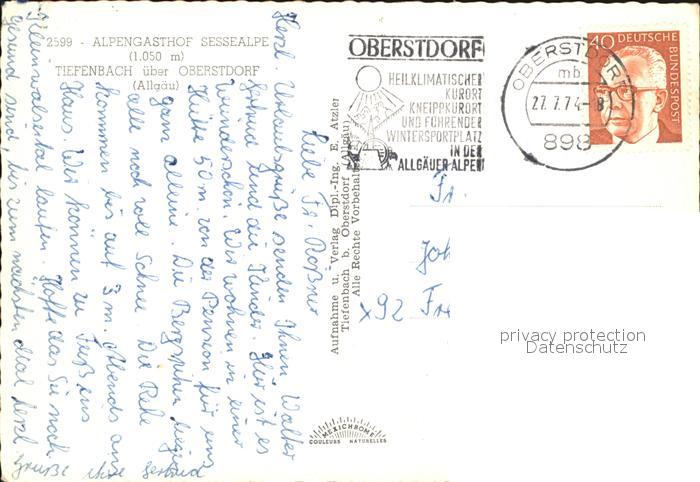 2599 - ALPENGASTHOF SESSEALPE
(1.050 m)
TIEFENBACH über OBERSTDORF
(Allgäu)
Liebe Fr. Roßner
Herzl Urlaubsgrüße senden Ihnen Walter
Gertrud und die Kinder. Hier ist es
wunderschön. Wir wohnen in einer
Hütte 50 m von der Pension für uns
ganz alleine. Die Bergspitzen
alle noch voll Schnee. Die Rehe
kommen bis auf 3 m. Abends ans
Haus. Wir können zu Fuß ins
Kleinwalsertal laufen. Hoffe das Sie noch
gesund sind, bis zum nächsten Mal herzl
Grüße Ihre Gertrud
Aufnahme u. Verlag Dipl.-Ing. E. Atzler
Tiefenbach b. Oberstdorf (Allgäu)
Alle Rechte Vorbehalten
OBERSTDORF
HEILKLIMATISCHER
KURORT
KNEIPPKURORT
UND FÜHRENDER
WINTERSPORTPLATZ
IN DEN
ALLGÄUER ALPEN
OBERSTDORF
mb
27.7.74-8
898
40 DEUTSCHE
BUNDESPOST
Fr.
Joh
x92 Fr
MEXICHROME
COULEURS NATURELLES
privacy protection
Datenschutz